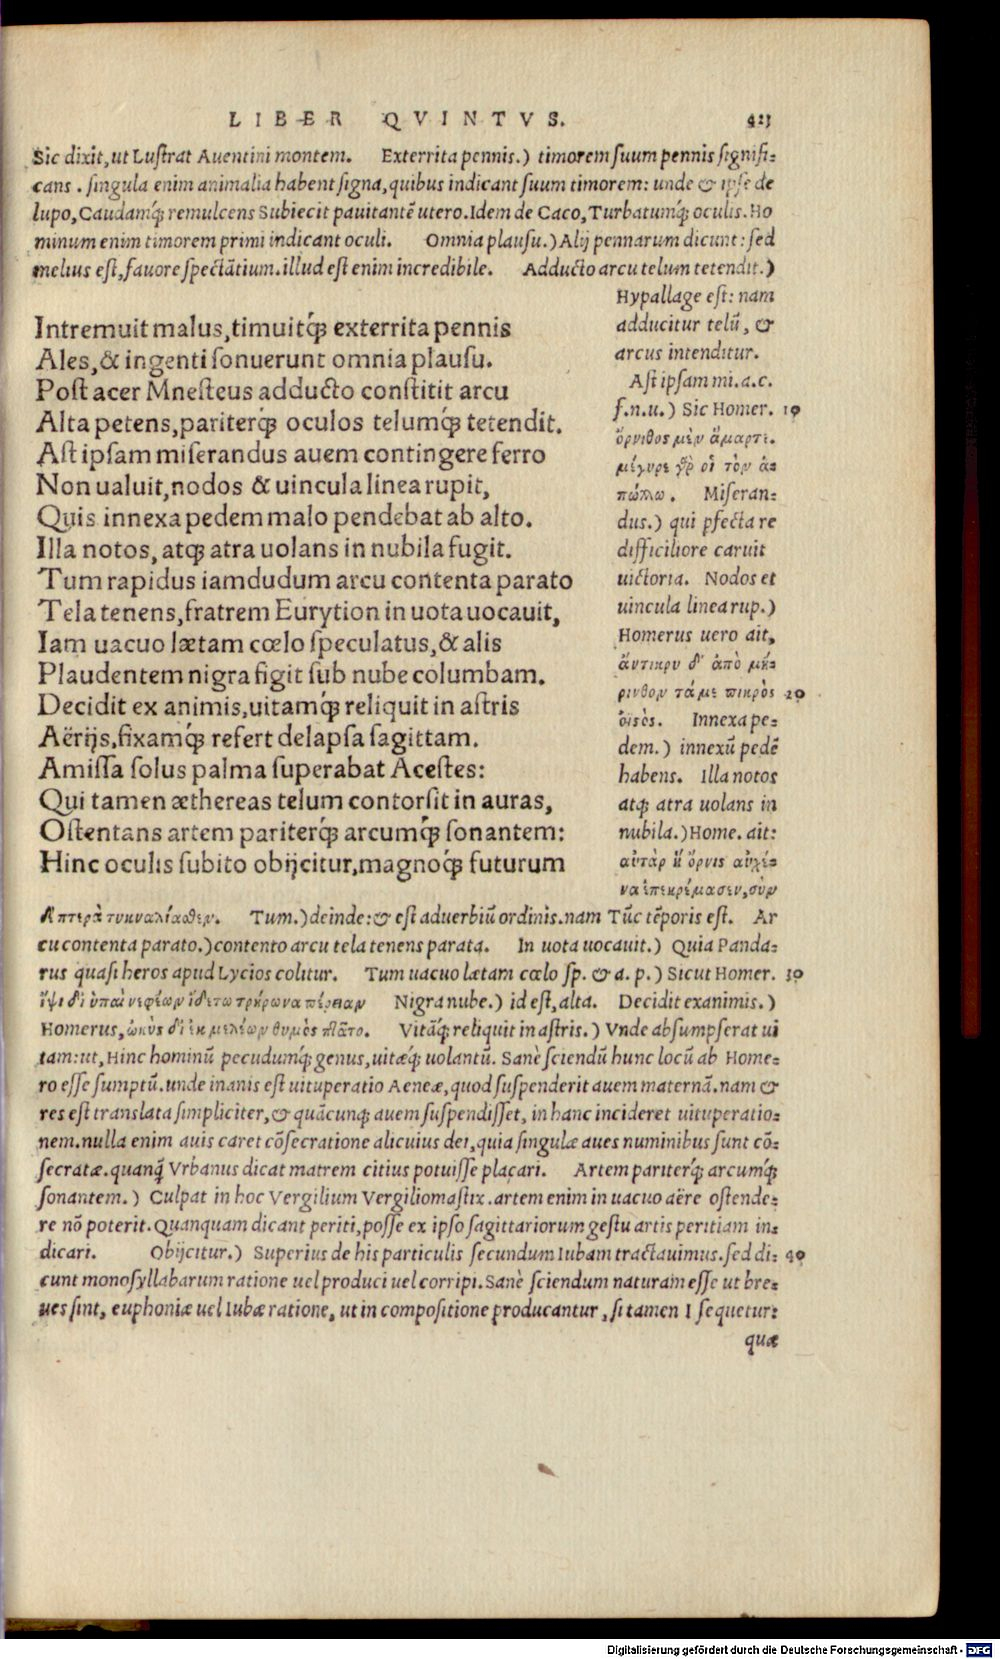 LIBER QVINTVS. 423
Sic dixit, ut Lustrat Auentini montem. Exterrita pennis.) timorem suum pennis signifi=
cans. singula enim animalia habent signa, quibus indicant suum timorem: unde & ipse de
lupo, Caudamq́; remulcens Subiecit pauitantē utero. Idem de Caco, Turbatumq́; oculis. Ho
minum enim timorem primi indicant oculi. Omnia plausu.) Alij pennarum dicunt: sed
melius est, fauore spectātium. illud est enim incredibile. Adducto arcu telum tetendit.)
Hypallage est: nam
adducitur telū, &
arcus intenditur.
Ast ipsam mi. a. c.
f. n. u.) Sic Homer. 10
ὄρνιθος μὲν ἅμαρτε.
μέγηρε γὰρ οἱ τὸν ἀ=
πόλλω. Miseran=
dus.) qui pfecta re
difficiliore caruit
uictoria. Nodos et
uincula linea rup.)
Homerus uero ait,
ἄντικρυ δ' ἀπὸ μή=
ρινθον τάμε πικρὸς 20
ὀϊστὸς. Innexa pe=
dem.) innexū pedē
habens. Illa notos
atq; atra uolans in
nubila.) Home. ait:
αὐτὰρ ἡ ὄρνις αὐχέ=
να ἐπικρέμασεν, σὺν
Intremuit malus, timuitq́; exterrita pennis
Ales, & ingenti sonuerunt omnia plausu.
Post acer Mnesteus adducto constitit arcu
Alta petens, pariterq́; oculos telumq́; tetendit.
Ast ipsam miserandus auem contingere ferro
Non ualuit, nodos & uincula linea rupit,
Quis innexa pedem malo pendebat ab alto.
Illa notos, atq; atra uolans in nubila fugit.
Tum rapidus iamdudum arcu contenta parato
Tela tenens, fratrem Eurytion in uota uocauit,
Iam uacuo lætam cœlo speculatus, & alis
Plaudentem nigra figit sub nube columbam.
Decidit ex animis, uitamq́; reliquit in astris
Aërijs, fixamq́; refert delapsa sagittam.
Amissa solus palma superabat Acestes:
Qui tamen æthereas telum contorsit in auras,
Ostentans artem pariterq́; arcumq́; sonantem:
Hinc oculis subito obijcitur, magnoq́; futurum
δὲ πτερὰ Tum.) deinde: & est aduerbiū ordinis. nam Tūc tēporis est. Ar
cu contenta parato.) contento arcu tela tenens parata. In uota uocauit.) Quia Panda=
rus quasi heros apud Lycios colitur. Tum uacuo lætam cœlo sp. & a. p.) Sicut Homer. 30
ὕψι δὲ ὑπαὶ νεφέων Nigra nube.) id est, alta. Decidit exanimis.)
Homerus, ὠκὺς δὲ ἐκ μελέων θυμὸς πτᾶτο. Vitāq́; reliquit in astris.) Vnde absumpserat ui
tam: ut, Hinc hominū pecudumq́; genus, uitæq́; uolantū. Sanè sciendū hunc locū ab Home=
ro esse sumptū. unde inanis est uituperatio Aeneæ, quod suspenderit auem maternā. nam &
res est translata simpliciter, & quācunq; auem suspendisset, in hanc incideret uituperatio=
nem. nulla enim auis caret cōsecratione alicuius dei, quia singulæ aues numinibus sunt cō=
secratæ. quanq̃ Vrbanus dicat matrem citius potuisse placari. Artem pariterq́; arcumq́;
sonantem.) Culpat in hoc Vergilium Vergiliomastix. artem enim in uacuo aëre ostende=
re nō poterit. Quanquam dicant periti, posse ex ipso sagittariorum gestu artis peritiam in=
dicari. Obijcitur.) Superius de his particulis secundum Iubam tractauimus. sed di= 40
cunt monosyllabarum ratione uel produci uel corripi. Sanè sciendum naturam esse ut bre=
ues sint, euphoniæ uel Iubæ ratione, ut in compositione producantur, si tamen I sequetur:
quæ
Digitalisierung gefördert durch die Deutsche Forschungsgemeinschaft - DFG